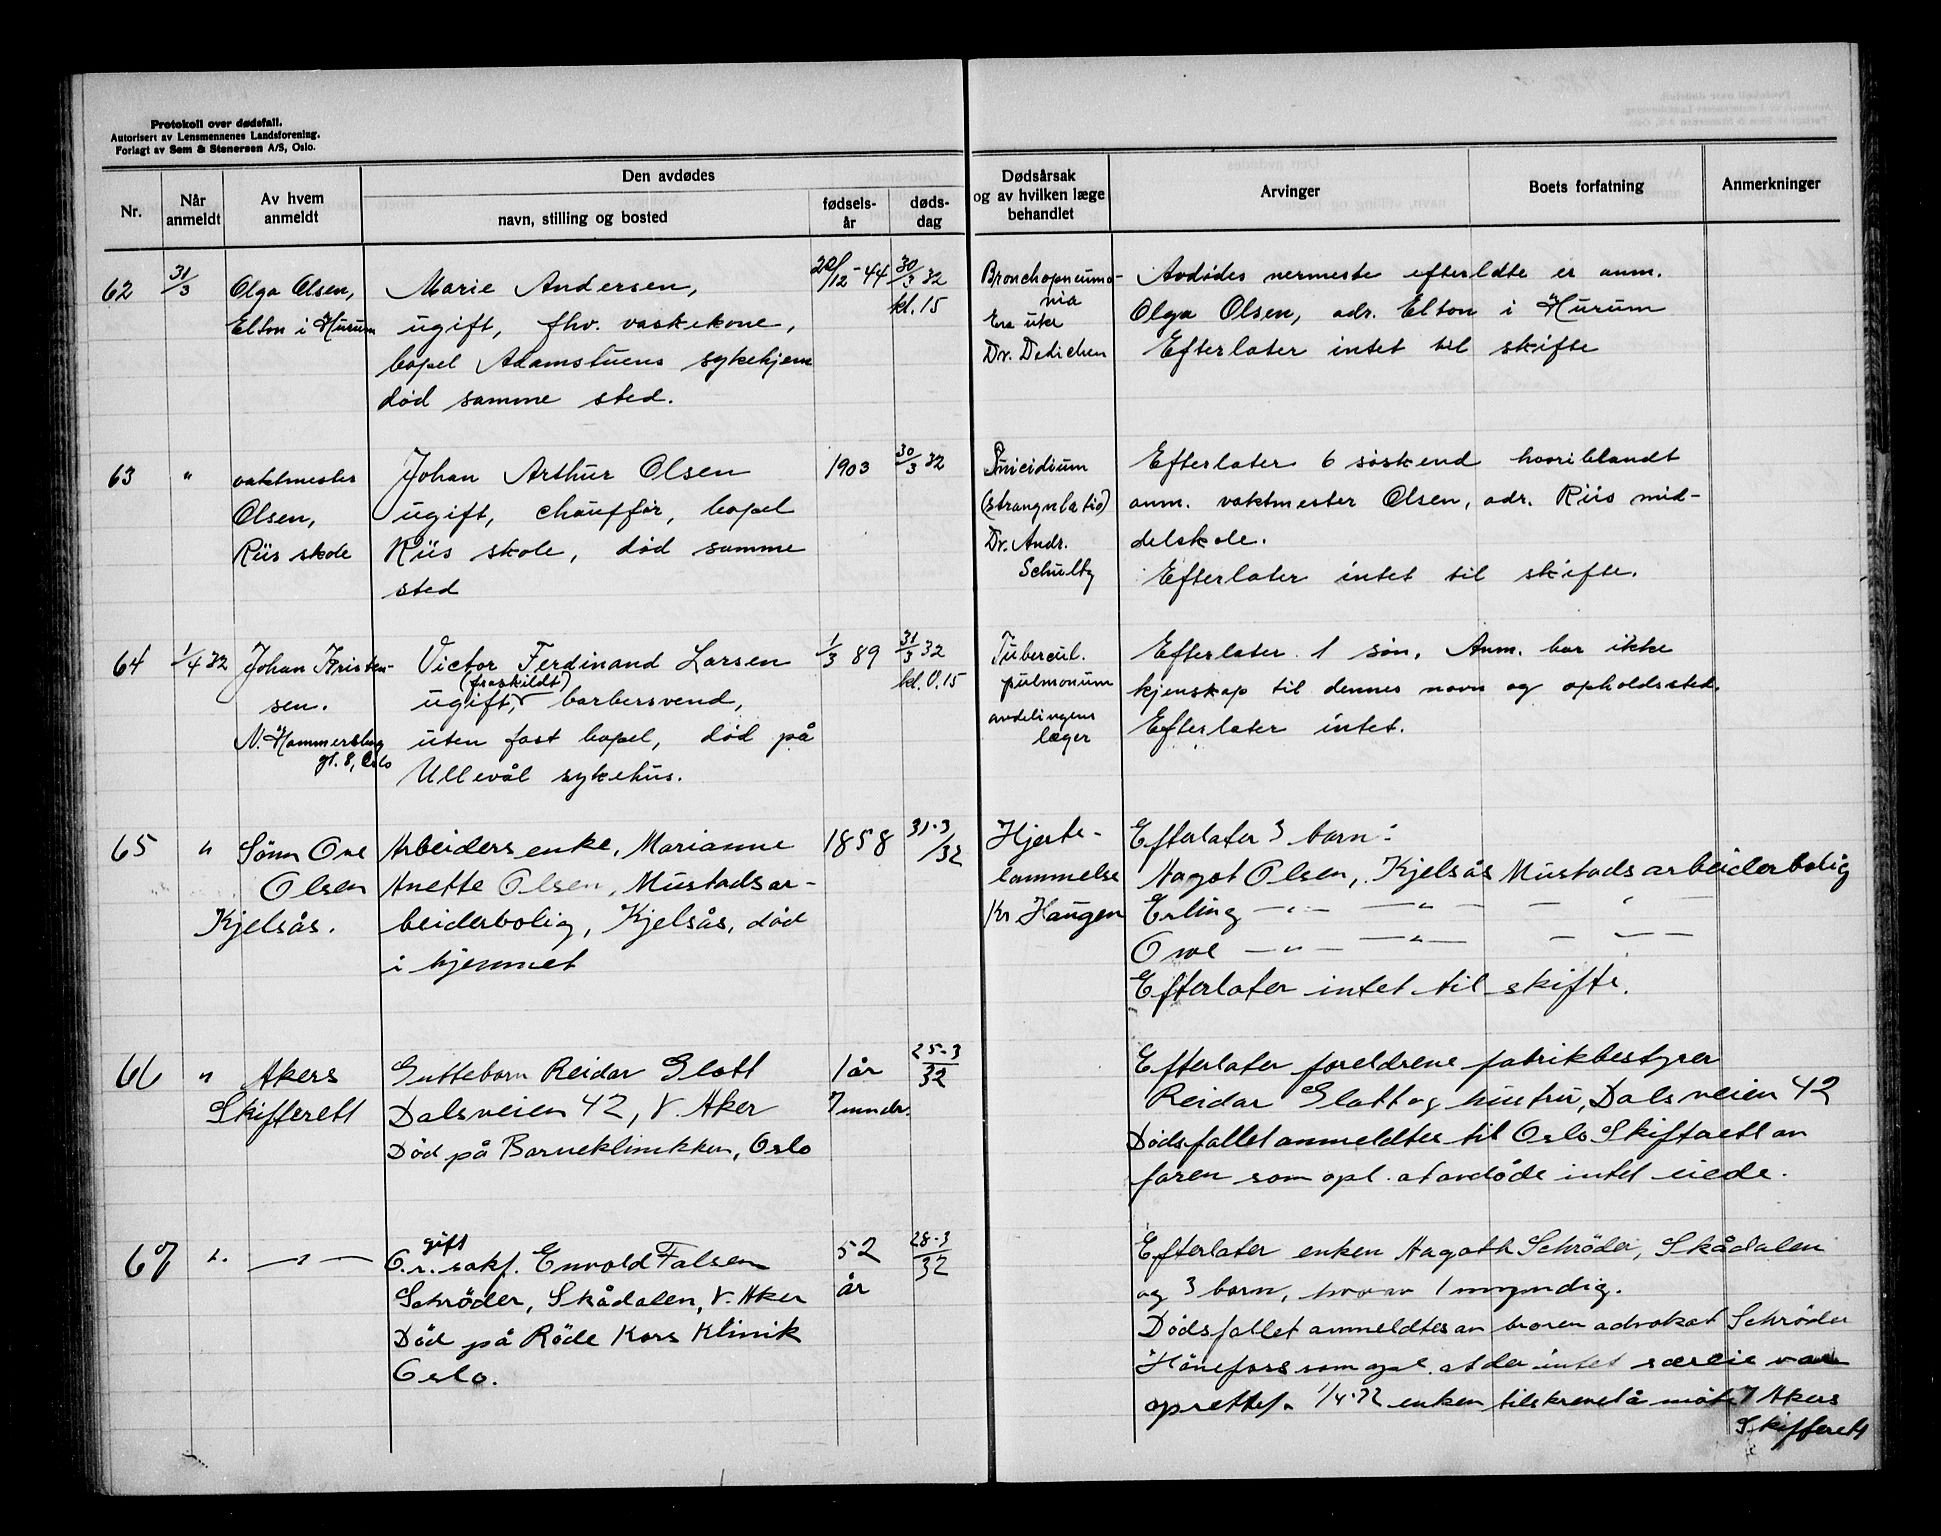 Protokoll over dødsfall.
Autorisert av Lensmennenes Landsforening.
Forlagt av Sem & Stenersen A/S, Oslo.
Nr.
Når anmeldt
Av hvem anmeldt
Den avdødes
navn, stilling og bosted
fødsels-år
døds-dag
Dødsårsak og av hvilken læge behandlet
Arvinger
Boets forfatning
Anmerkninger
62
31/3
Olga Olsen,
Elton i Hurum
Marie Andersen,
ugift, fhv. vaskekone,
bopel Adamstuens sykehjem
død samme sted.
20/12-44
30/3 32
kl. 15
Bronchopneumo-
nia
En uke
Dr. Dedichen
Avdødes nermeste efterladte er anm.
Olga Olsen, adr. Elton i Hurum
Efterlater intet til skifte
63
"
vaktmester
Olsen,
Riis skole
Johan Arthur Olsen
ugift, chauffør, bopel
Riis skole, død samme
sted
1903
30/3 32
Suicidium
(strangulatio)
Dr. Andr.
Schultz
Efterlater 6 søskend hvoriblandt
anm. vaktmester Olsen, adr. Riis mid-
delskole.
Efterlater intet til skifte.
64
1/4 32
Johan Kristen-
sen.
N. Hammersborg
gt. 8, Oslo
Victor Ferdinand Larsen
(fraskildt)
ugift, barbersvend,
uten fast bopel, død på
Ullevål sykehus.
1/3 89
31/3 32
kl. 0.15
Tubercul.
pulmonum
avdelingens
læger
Efterlater 1 søn. Anm. har ikke
kjenskap til dennes navn og opholdssted.
Efterlater intet.
65
"
Sønn Ove
Olsen
Kjelsås.
Arbeiders enke, Marianne
Anette Olsen, Mustads ar-
beiderbolig, Kjelsås, død
i hjemmet
1858
31-3/32
Hjerte-
lammelse
Kr Haugen
Efterlater 3 barn:
Aagot Olsen, Kjelsås Mustads arbeiderbolig
Erling -"- -"- - " -
Ove -"- -"- - " -
Efterlater intet til skifte.
66
"
Akers
Skifterett
Guttebarn Reidar Glatt
Dalsveien 42, V. Aker
Død på Barneklinikken, Oslo
1 år
7 mndr.
25-3
32
Efterlater foreldrene fabrikbestyrer
Reidar Glatt og hustru, Dalsveien 42
Dødsfallet anmeldtes til Oslo Skifterett av
faren som opl. at avdøde intet eiede.
67
"
-"-
gift
O.r. sakf. Envold Falsen
Schrøder, Skådalen, V. Aker
Død på Røde Kors Klinik
Oslo.
52
år
28-3
32
Efterlater enken Aagoth Schrøder, Skådalen
og 3 barn, hvorav 1 umyndig.
Dødsfallet anmeldtes av broren advokat Schrøder
Hønefoss som opl. at der intet særeie var
oprettet. 1/4-32 enken tilskrevet å møte i Akers
Skifterett